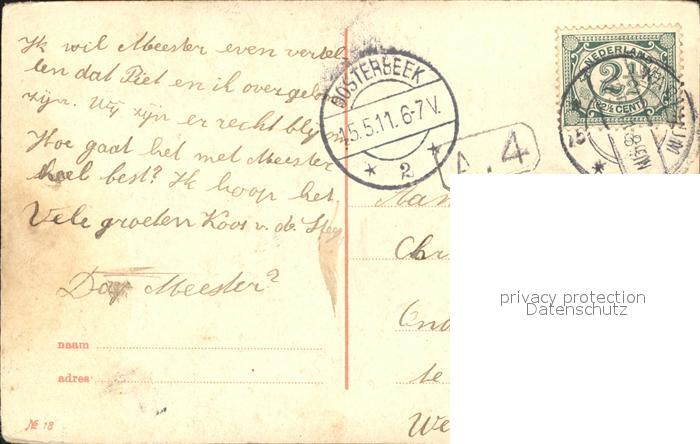 Ik wil Meester even vertel
len dat Piet en ik over
zijn. Wij zijn er recht blij
Hoe gaat het met Meester
heel best? Ik hoop het
Vele groeten Koos v. d.
Dag Meester?
naam
adres
№ 18
OOSTERBEEK
15.5.11. 6-7V.
2
A.4
NEDERLAND
2½
2½ CENT
Aan
Ond
te
We
privacy protection
Datenschutz